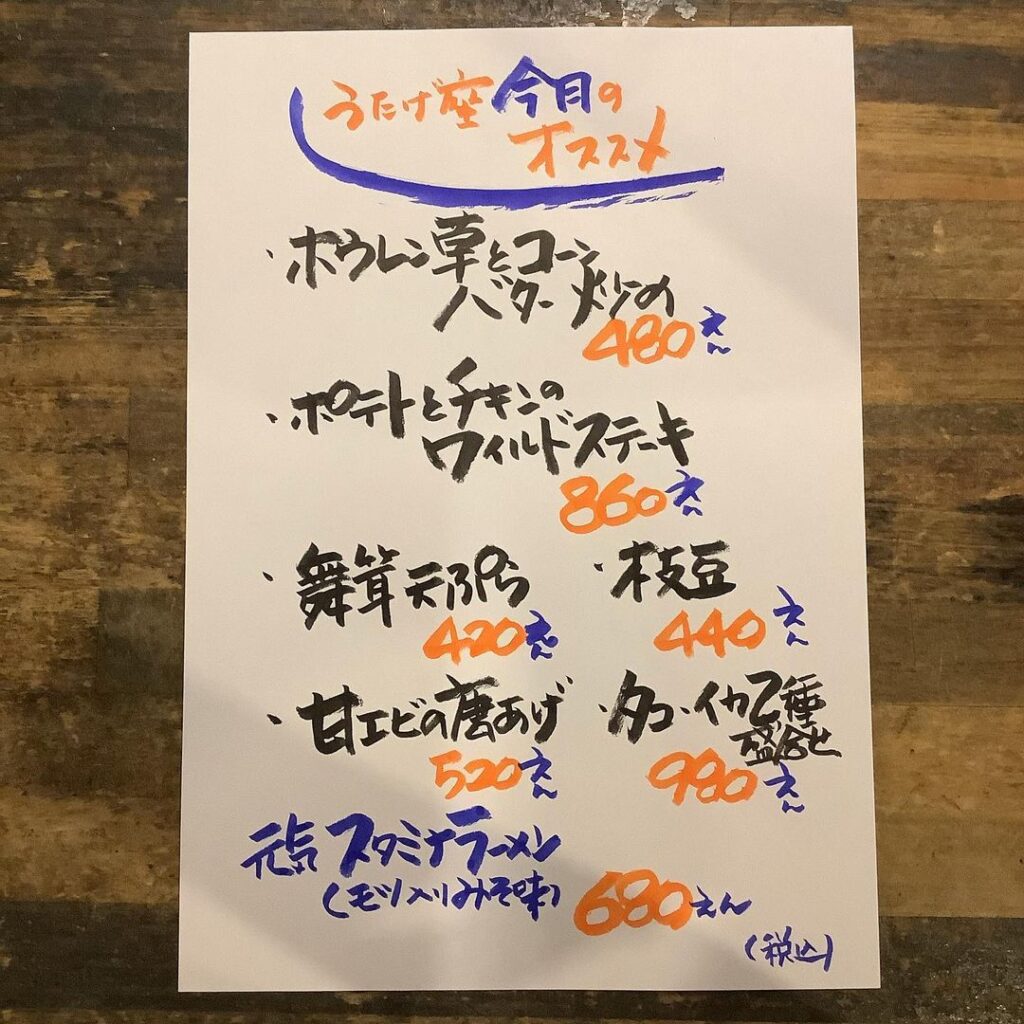 うたげ座 今月の
オススメ
・ホウレン草とコーン
バター炒め
480えん
・ポテトとチキンの
ワイルドステーキ
860えん
・舞茸天ぷら
420えん
・枝豆
440えん
・甘エビの唐あげ
520えん
・タコ・イカ2種
盛合せ
980えん
元気スタミナラーメン
(モツ入りみそ味)
680えん
(税込)